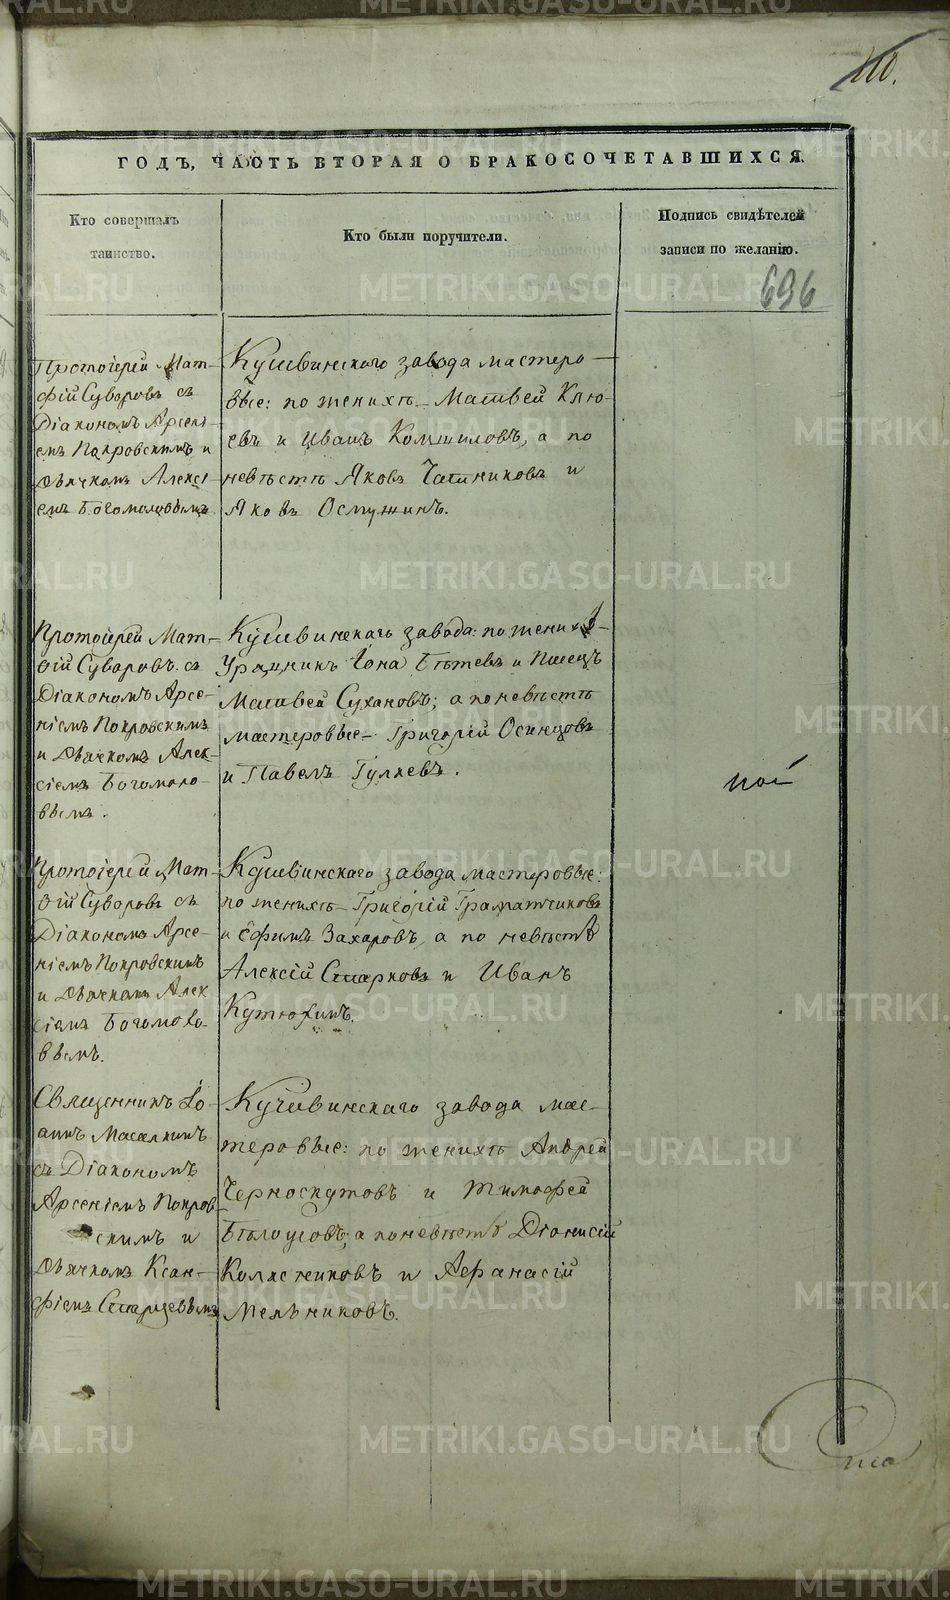 110.
ГОДЪ, ЧАСТЬ ВТОРАЯ О БРАКОСОЧЕТАВШИХСЯ.
Кто совершалъ
таинство.
Кто были поручители.
Подпись свидѣтелей
записи по желанію.
696
Протоіерей Мат-
фій Суворовъ съ
Діакономъ Арсені-
емъ Покровскимъ и
Дьячкомъ Алексі-
емъ Богомоловымъ
Кушвинскаго завода мастеро-
вые: по женихѣ Матвей Клю-
евъ и Иванъ Комиловъ, а по
невѣстѣ Яковъ Чашниковъ и
Яковъ Осмушинъ.
Протоіерей Мат-
ѳій Суворовъ съ
Діакономъ Арсе-
ніемъ Покровскимъ
и Дьячкомъ Алек-
сіемъ Богомоло-
вымъ.
Кушвинскаго завода: по женихѣ
Урядникъ Іона Бѣтевъ и Писецъ
Матвей Сухановъ; а по невѣстѣ
мастеровые Григорій Осинцовъ
и Павелъ Гуляевъ.
Протоіерей Мат-
ѳій Суворовъ съ
Діакономъ Арсе-
ніемъ Покровскимъ
и Дьячкомъ Алек
сіемъ Богомоло-
вымъ.
Кушвинскаго завода мастеровые:
по женихѣ Григорій Граматчиковъ
и Ефимъ Захаровъ, а по невѣстѣ
Алексій Старковъ и Иванъ
Кутюхинъ.
Священникъ Іо-
аннъ Масалкинъ
съ Діакономъ
Арсеніемъ Покров
скимъ и
Дьячкомъ Ксан-
фіемъ Старцевымъ
Кушвинскаго завода мас-
теровые: по женихѣ Андрей
Черноскутовъ и Тимофей
Бѣлоусовъ, а по невѣстѣ Діонисій
Колясниковъ и Афанасій
Мельниковъ.
METRIKI.GASO-URAL.RU